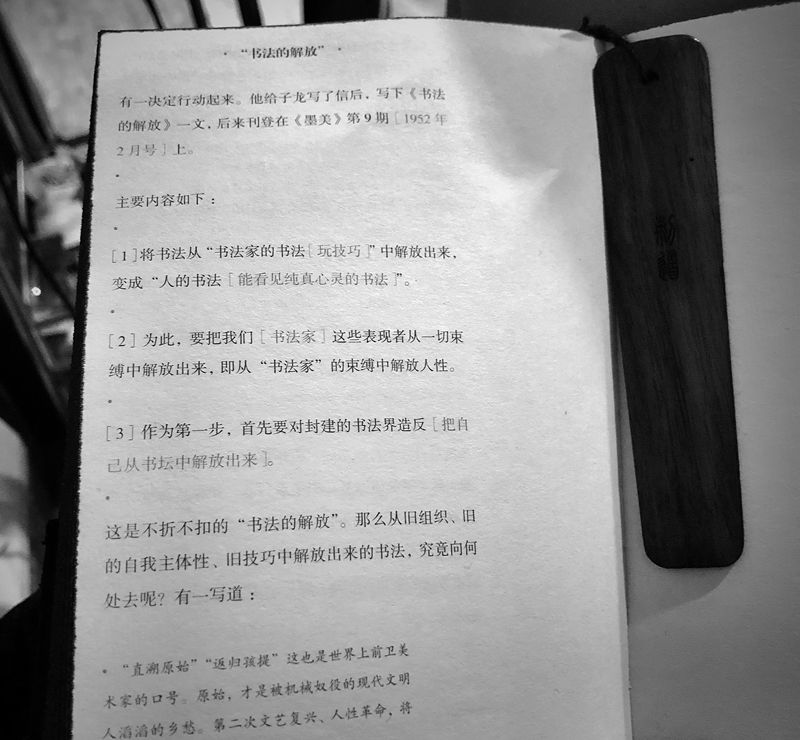 ·“书法的解放”·
有一决定行动起来。他给子龙写了信后，写下《书法
的解放》一文，后来刊登在《墨美》第9期［1952年
2月号］上。
主要内容如下：
［1］将书法从“书法家的书法［玩技巧］”中解放出来，
变成“人的书法［能看见纯真心灵的书法］”。
［2］为此，要把我们［书法家］这些表现者从一切束
缚中解放出来，即从“书法家”的束缚中解放人性。
［3］作为第一步，首先要对封建的书法界造反［把自
己从书坛中解放出来］。
这是不折不扣的“书法的解放”。那么从旧组织、旧
的自我主体性、旧技巧中解放出来的书法，究竟向何
处去呢？有一写道：
“直溯原始”“返归孩提”这也是世界上前卫美
术家的口号。原始，才是被机械奴役的现代文明
人滔滔的乡愁。第二次文艺复兴、人性革命，将